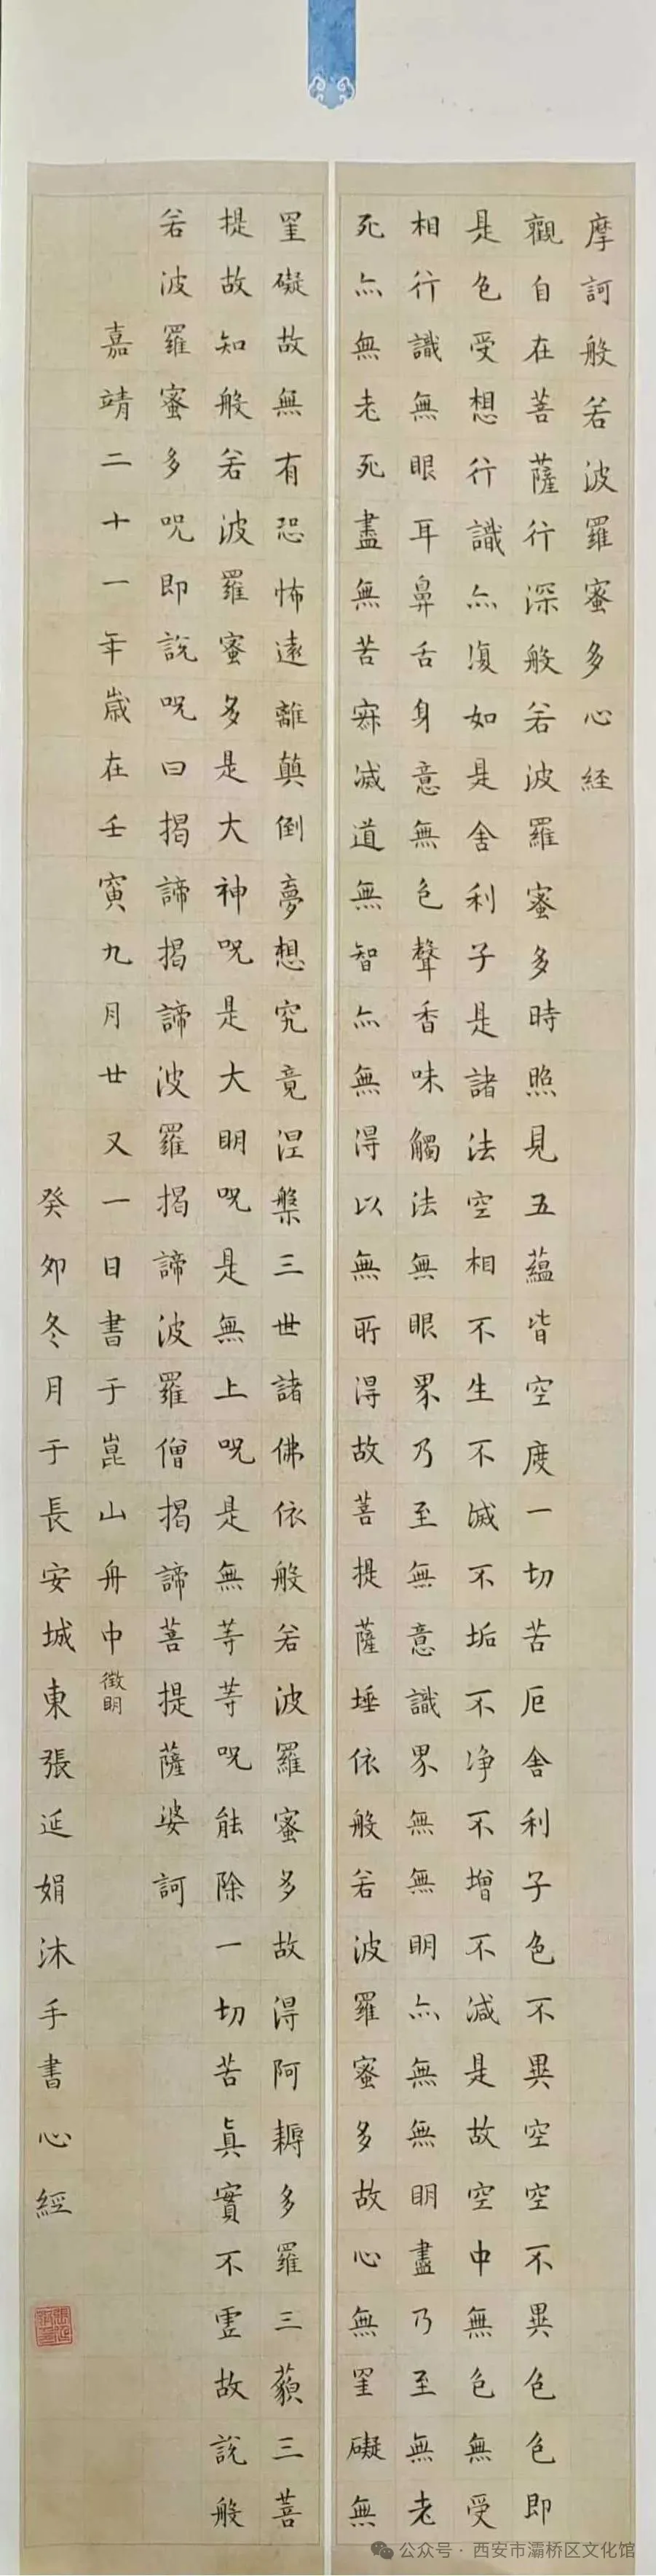 摩訶般若波羅蜜多心経
觀自在菩薩行深般若波羅蜜多時照見五蘊皆空度一切苦厄舍利子色不異空空不異色色即
是色受想行識亦復如是舍利子是諸法空相不生不滅不垢不净不增不減是故空中無色無受
相行識無眼耳鼻舌身意無色聲香味觸法無眼界乃至無意識界無無明亦無無明盡乃至無老
死亦無老死盡無苦寂滅道無智亦無得以無所得故菩提薩埵依般若波羅蜜多故心無罣礙無
罣礙故無有恐怖遠離顛倒夢想究竟涅槃三世諸佛依般若波羅蜜多故得阿耨多羅三藐三菩
提故知般若波羅蜜多是大神呪是大明呪是無上呪是無等等呪能除一切苦真實不虛故說般
若波羅蜜多呪即說呪曰揭諦揭諦波羅揭諦波羅僧揭諦菩提薩婆訶
嘉靖二十一年歲在壬寅九月廿又一日書于崑山舟中徵明
癸卯冬月于長安城東張延娟沐手書心經
公众号·西安市灞桥区文化馆